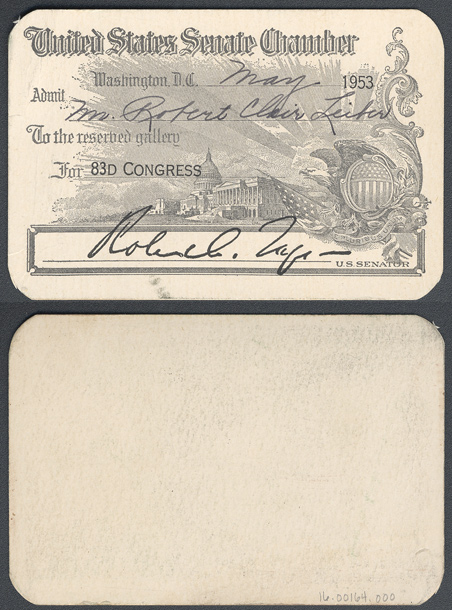 United States Senate Chamber
Washington, D.C. May 1953
Admit Mr. Robert Clair Lieber
To the reserved gallery
For 83D CONGRESS
Robert
U.S. SENATOR
16.00164.000